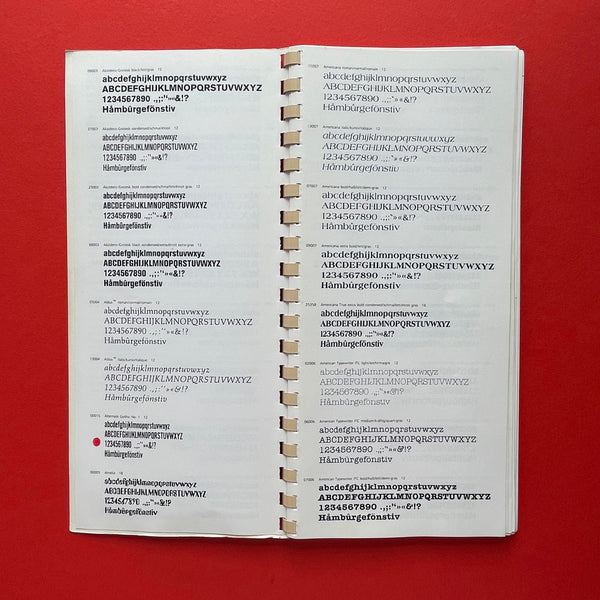 Akzidenz-Grotesk black/fett/gras 12
abcdefghijklmnopqrstuvwxyz
ABCDEFGHIJKLMNOPQRSTUVWXYZ
1234567890 .,;:'"»«&!?
Håmbürgefönstiv
abcdefghijklmnopqrstuvwxyz
ABCDEFGHIJKLMNOPQRSTUVWXYZ
1234567890 .,;:'"»«&!?
Håmbürgefönstiv
abcdefghijklmnopqrstuvwxyz
ABCDEFGHIJKLMNOPQRSTUVWXYZ
1234567890 .,;:'"»«&!?
Håmbürgefönstiv
abcdefghijklmnopqrstuvwxyz
ABCDEFGHIJKLMNOPQRSTUVWXYZ
1234567890 .,;:'"»«&!?
Håmbürgefönstiv
Aldus™ roman/normal/romain 12
abcdefghijklmnopqrstuvwxyz
ABCDEFGHIJKLMNOPQRSTUVWXYZ
1234567890 .,;:'"»«&!?
Håmbürgefönstiv
Aldus™ italic/kursiv/italique 12
abcdefghijklmnopqrstuvwxyz
ABCDEFGHIJKLMNOPQRSTUVWXYZ
1234567890 .,;:'"»«&!?
Håmbürgefönstiv
Alternate Gothic No. 1 12
abcdefghijklmnopqrstuvwxyz
ABCDEFGHIJKLMNOPQRSTUVWXYZ
1234567890 .,;:'"»«&!?
Håmbürgefönstiv
Amelia 18
abcdefghijklmnopqrstuvwxyz
ABCDEFGHIJKLMNOPQRSTUVWXYZ
1234567890 .,;:'"»«&!?
Håmbürgefönstiv
Americana roman/normal/romain 12
abcdefghijklmnopqrstuvwxyz
ABCDEFGHIJKLMNOPQRSTUVWXYZ
1234567890 .,;:'"»«&!?
Håmbürgefönstiv
Americana italic/kursiv/italique 12
abcdefghijklmnopqrstuvwxyz
ABCDEFGHIJKLMNOPQRSTUVWXYZ
1234567890 .,;:'"»«&!?
Håmbürgefönstiv
Americana bold/halbfett/demi-gras 12
abcdefghijklmnopqrstuvwxyz
ABCDEFGHIJKLMNOPQRSTUVWXYZ
1234567890 .,;:'"»«&!?
Håmbürgefönstiv
Americana extra bold/fett/gras 12
abcdefghijklmnopqrstuvwxyz
ABCDEFGHIJKLMNOPQRSTUVWXYZ
1234567890 .,;:'"»«&!?
Håmbürgefönstiv
abcdefghijklmnopqrstuvwxyz
ABCDEFGHIJKLMNOPQRSTUVWXYZ
1234567890 .,;:'"»«&!?
Håmbürgefönstiv
American Typewriter ITC light/leicht/maigre 12
abcdefghijklmnopqrstuvwxyz
ABCDEFGHIJKLMNOPQRSTUVWXYZ
1234567890 .,;:'"»«&!?
Håmbürgefönstiv
abcdefghijklmnopqrstuvwxyz
ABCDEFGHIJKLMNOPQRSTUVWXYZ
1234567890 .,;:'"»«&!?
Håmbürgefönstiv
American Typewriter ITC bold/halbfett/demi-gras 12
abcdefghijklmnopqrstuvwxyz
ABCDEFGHIJKLMNOPQRSTUVWXYZ
1234567890 .,;:'"»«&!?
Håmbürgefönstiv